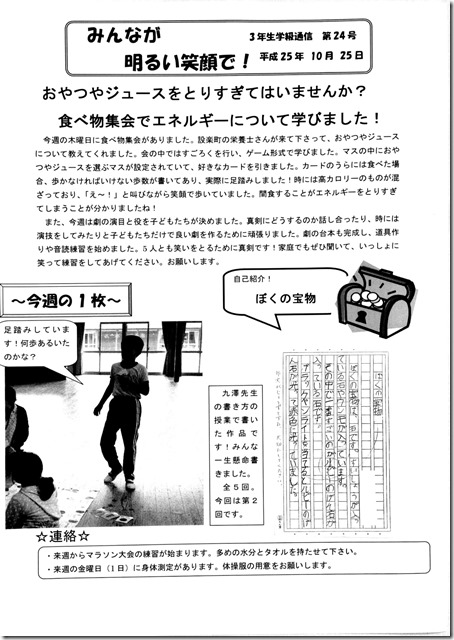 みんなが
明るい笑顔で！
3年生学級通信　第24号
平成25年　10月　25日
おやつやジュースをとりすぎてはいませんか？
食べ物集会でエネルギーについて学びました！
今週の木曜日に食べ物集会がありました。設楽町の栄養士さんが来て下さって、おやつやジュース
について教えてくれました。会の中ではすごろくを行い、ゲーム形式で学びました。マスの中におや
つやジュースを選ぶマスが設定されていて、好きなカードを引きました。カードのうらには食べた場
合、歩かなければいけない歩数が書いてあり、実際に足踏みしました！時には高カロリーのものが混
ざっており、「え～！」と叫びながら笑顔で歩いていました。間食することがエネルギーをとりすぎ
てしまうことが分かりましたね！
また、今週は劇の演目と役を子どもたちが決めました。真剣にどうするのか話し合ったり、時には
演技をしてみたりと子どもたちだけで良い劇を作るために頑張りました。劇の台本も完成し、道具作
りや音読練習を始めました。5人とも笑いをとるために真剣です！家庭でもぜひ聞いて、いっしょに
笑って練習をしてあげてください。お願いします。
～今週の1枚～
足踏みしていま
す！何歩あるいた
のかな？
自己紹介！
ぼくの宝物
九澤先生
の書き方の
授業で書い
た作品で
す！みんな
一生懸命書
きました。
全5回。
今回は第2
回です。
ぼくの宝物
☆連絡☆
・来週からマラソン大会の練習が始まります。多めの水分とタオルを持たせて下さい。
・来週の金曜日（1日）に身体測定があります。体操服の用意をお願いします。